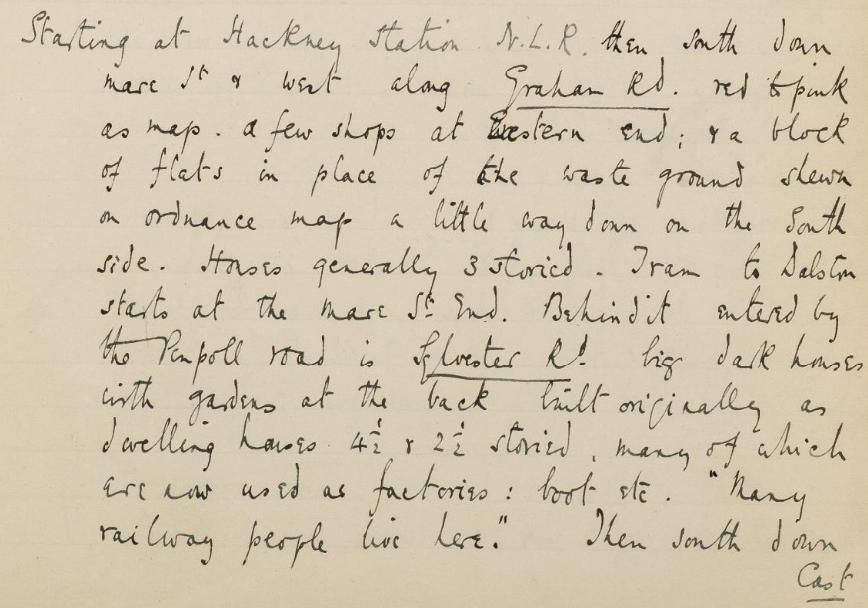 Starting at Hackney Station N.L.R. then south down
mare St & west along Graham Rd. red to pink
as map. a few shops at Eestern end; & a block
of flats in place of the waste ground shewn
on ordnance map a little way down on the South
side. Houses generally 3 storied. Tram to Dalston
starts at the mare St End. Behind it entered by
the Penpoll road is Sylvester Rd. big dark houses
with gardens at the back built originally as
dwelling houses 4½ & 2½ storied, many of which
are now used as factories: boot etc. "Many
railway people live here." Then south down